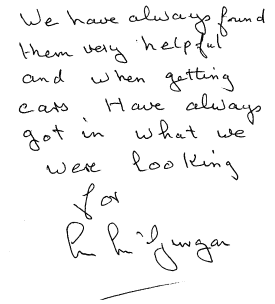 We have always found
them very helpful
and when getting
cars Have always
got in what we
were looking
for